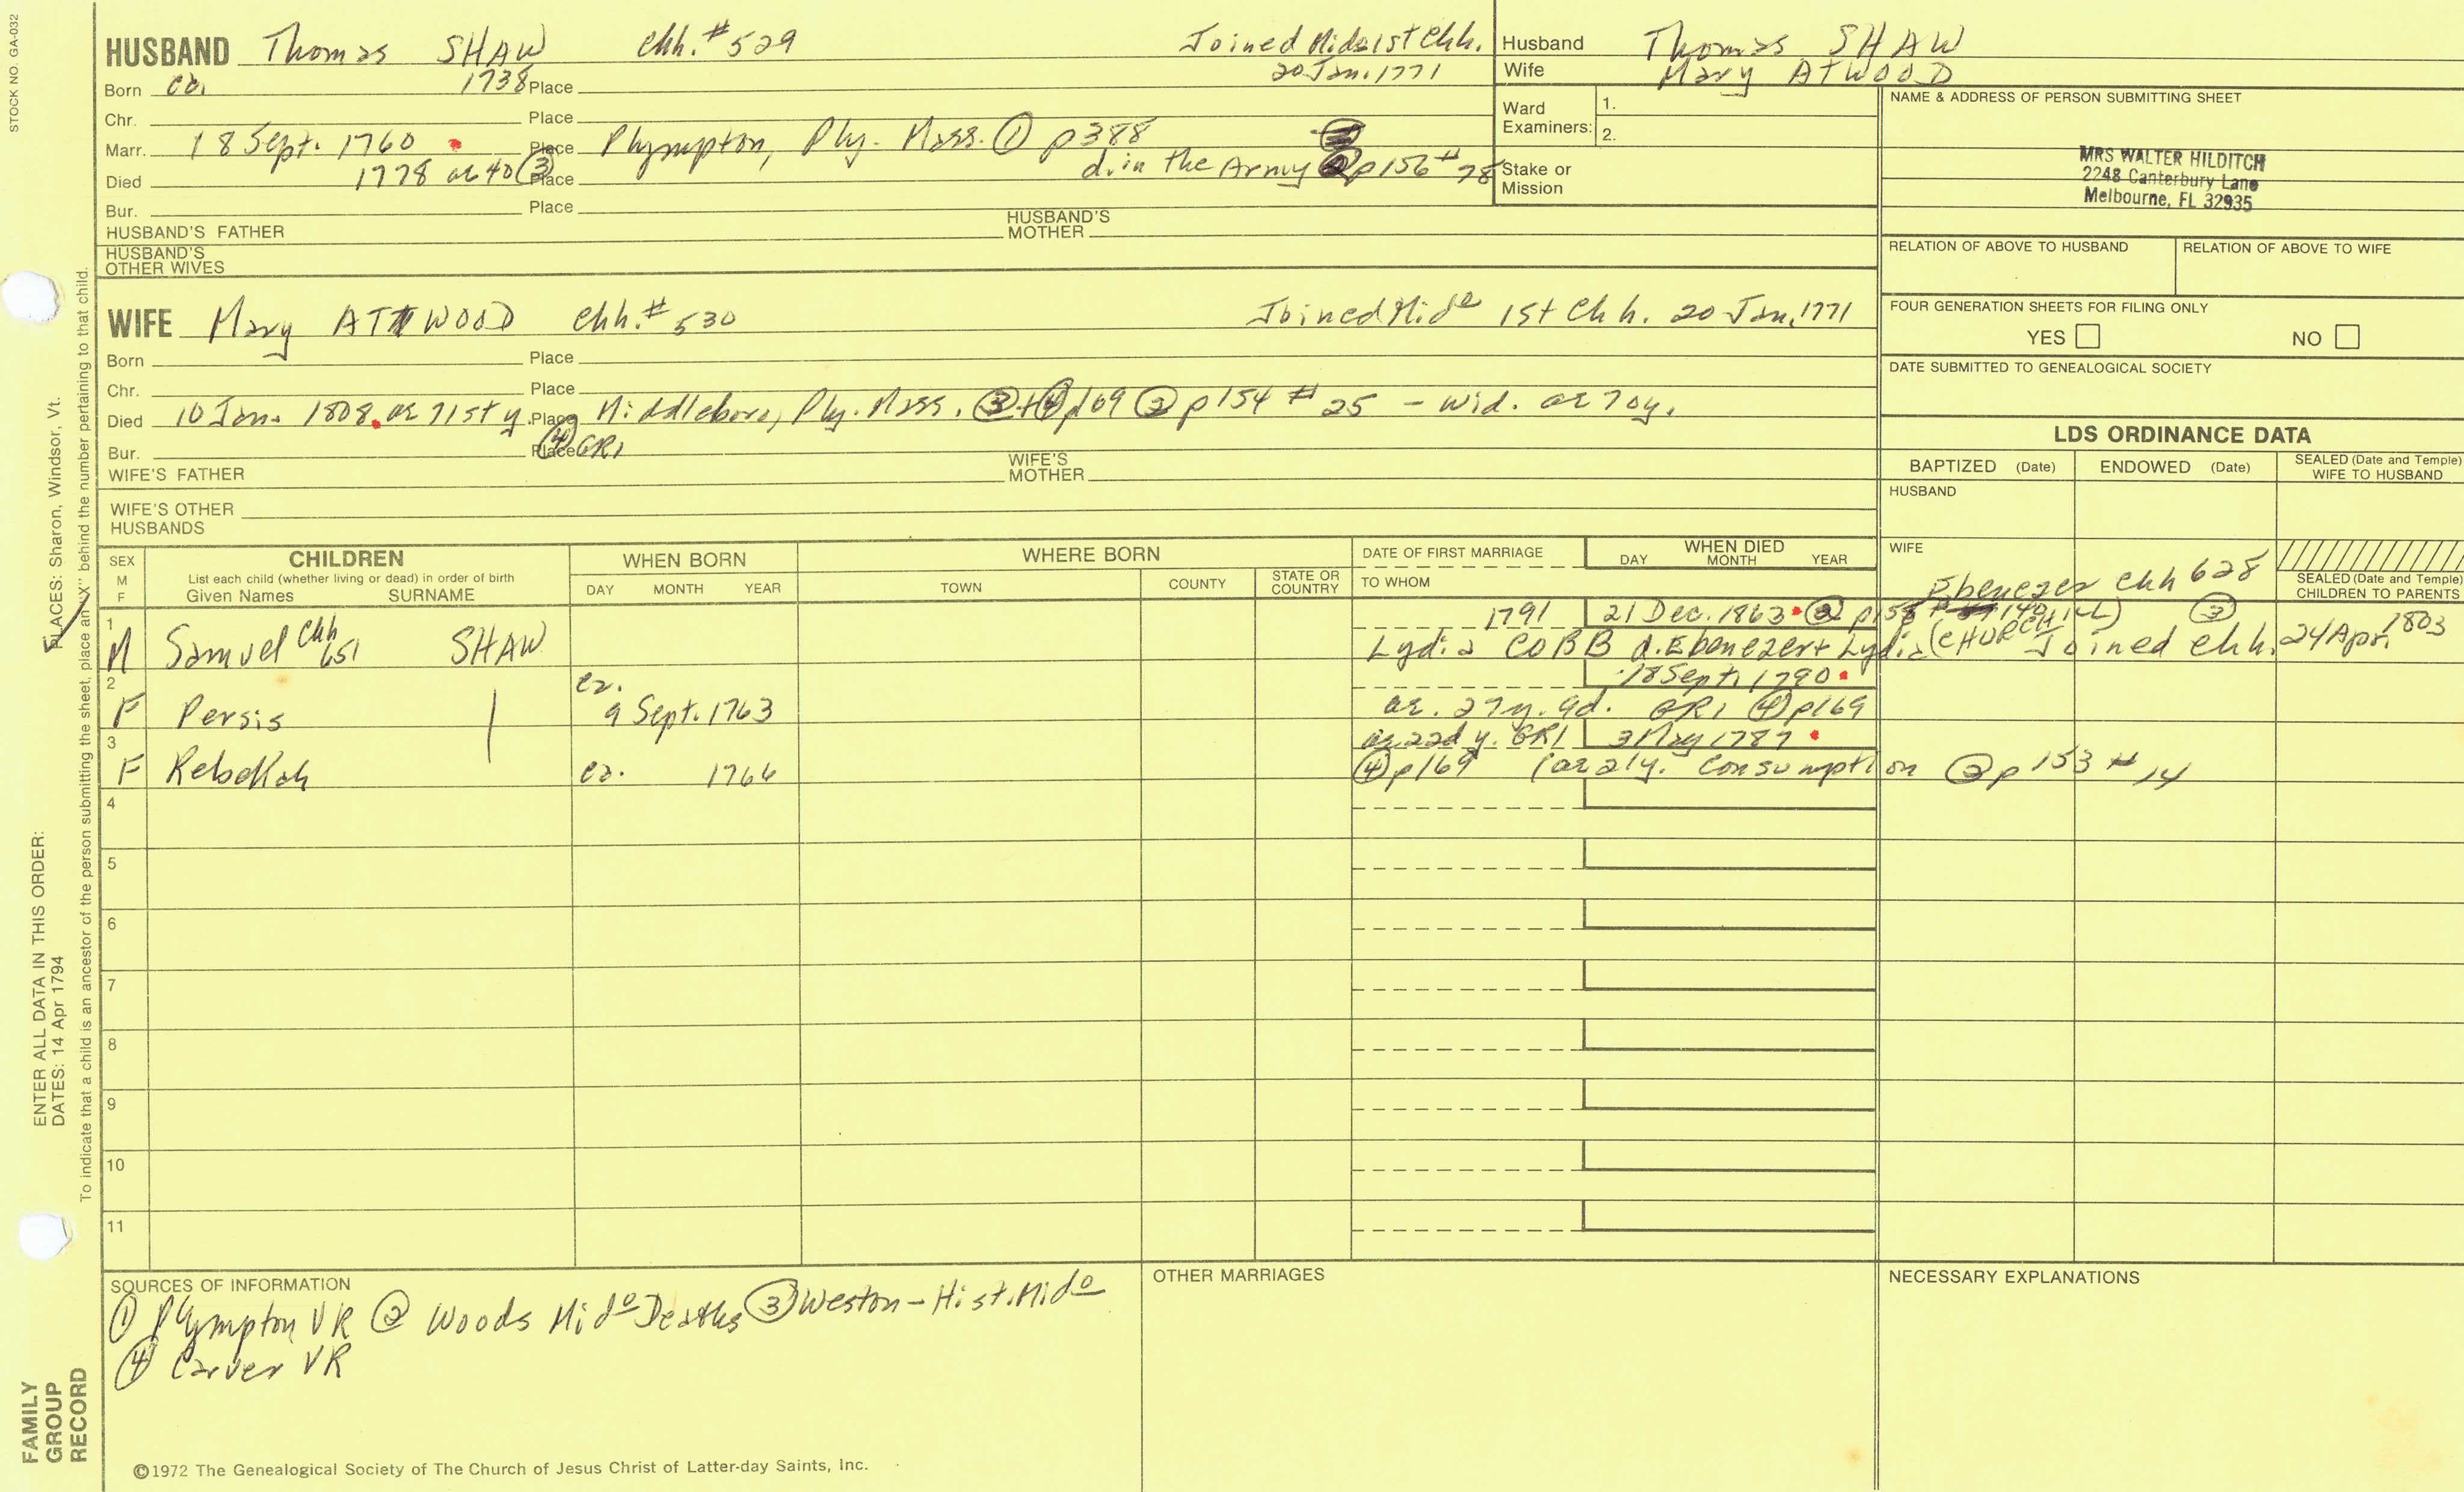 STOCK NO. GA-032
HUSBAND Thomas SHAW Chh. #529 Joined Mido 1st Chh.
20 Jan. 1771
Born ca. 1738 Place
Chr. Place
Marr. 18 Sept. 1760 Place Plympton, Ply. Mass. ① p388
Died 1778 ae 40 ③ Place d. in the Army p156 #78
Bur. Place
HUSBAND'S FATHER HUSBAND'S MOTHER
HUSBAND'S OTHER WIVES
Husband Thomas SHAW
Wife Mary ATWOOD
Ward Examiners: 1.
2.
Stake or Mission
NAME & ADDRESS OF PERSON SUBMITTING SHEET
MRS WALTER HILDITCH
2248 Canterbury Lane
Melbourne, FL 32935
RELATION OF ABOVE TO HUSBAND RELATION OF ABOVE TO WIFE
FOUR GENERATION SHEETS FOR FILING ONLY
YES NO
DATE SUBMITTED TO GENEALOGICAL SOCIETY
WIFE Mary ATWOOD Chh. # 530 Joined Mido 1st Chh. 20 Jan. 1771
Born Place
Chr. Place
Died 10 Jan. 1808. ae 71st y. Place Middleboro, Ply. Mass. ③+④ p169 ② p154 # 25 - wid. ae 70y.
Bur. Place ④ GR1
WIFE'S FATHER WIFE'S MOTHER
WIFE'S OTHER HUSBANDS
LDS ORDINANCE DATA
BAPTIZED (Date) ENDOWED (Date) SEALED (Date and Temple) WIFE TO HUSBAND
HUSBAND
WIFE
SEALED (Date and Temple) CHILDREN TO PARENTS
SEX M F CHILDREN
List each child (whether living or dead) in order of birth
Given Names SURNAME
WHEN BORN
DAY MONTH YEAR
WHERE BORN
TOWN COUNTY STATE OR COUNTRY
DATE OF FIRST MARRIAGE
TO WHOM
WHEN DIED
DAY MONTH YEAR
Ebenezer chh 628
1 1791 21 Dec. 1863 ② p158 140 ③ 1803
M Samuel Chh 651 SHAW Lydia COBB d. Ebenezer + Lydia (CHURCHILL) Joined chh. 24 Apr.
2 ca. 18 Sept. 1790
F Persis 9 Sept. 1763 ae. 27y. 9d. GR1 ④ p169
3 ae 22d y. GR1 3 May 1787
F Rebekah ca. 1766 ④ p169 (ae 21y. Consumption ② p153 # 14
4
5
6
7
8
9
10
11
SOURCES OF INFORMATION
① Plympton VR ② Woods Mido Deaths ③ Weston - Hist. Mido
④ Carver VR
OTHER MARRIAGES
NECESSARY EXPLANATIONS
©1972 The Genealogical Society of The Church of Jesus Christ of Latter-day Saints, Inc.
FAMILY GROUP RECORD
ENTER ALL DATA IN THIS ORDER:
DATES: 14 Apr 1794
PLACES: Sharon, Windsor, Vt.
To indicate that a child is an ancestor of the person submitting the sheet, place an "X" behind the number pertaining to that child.